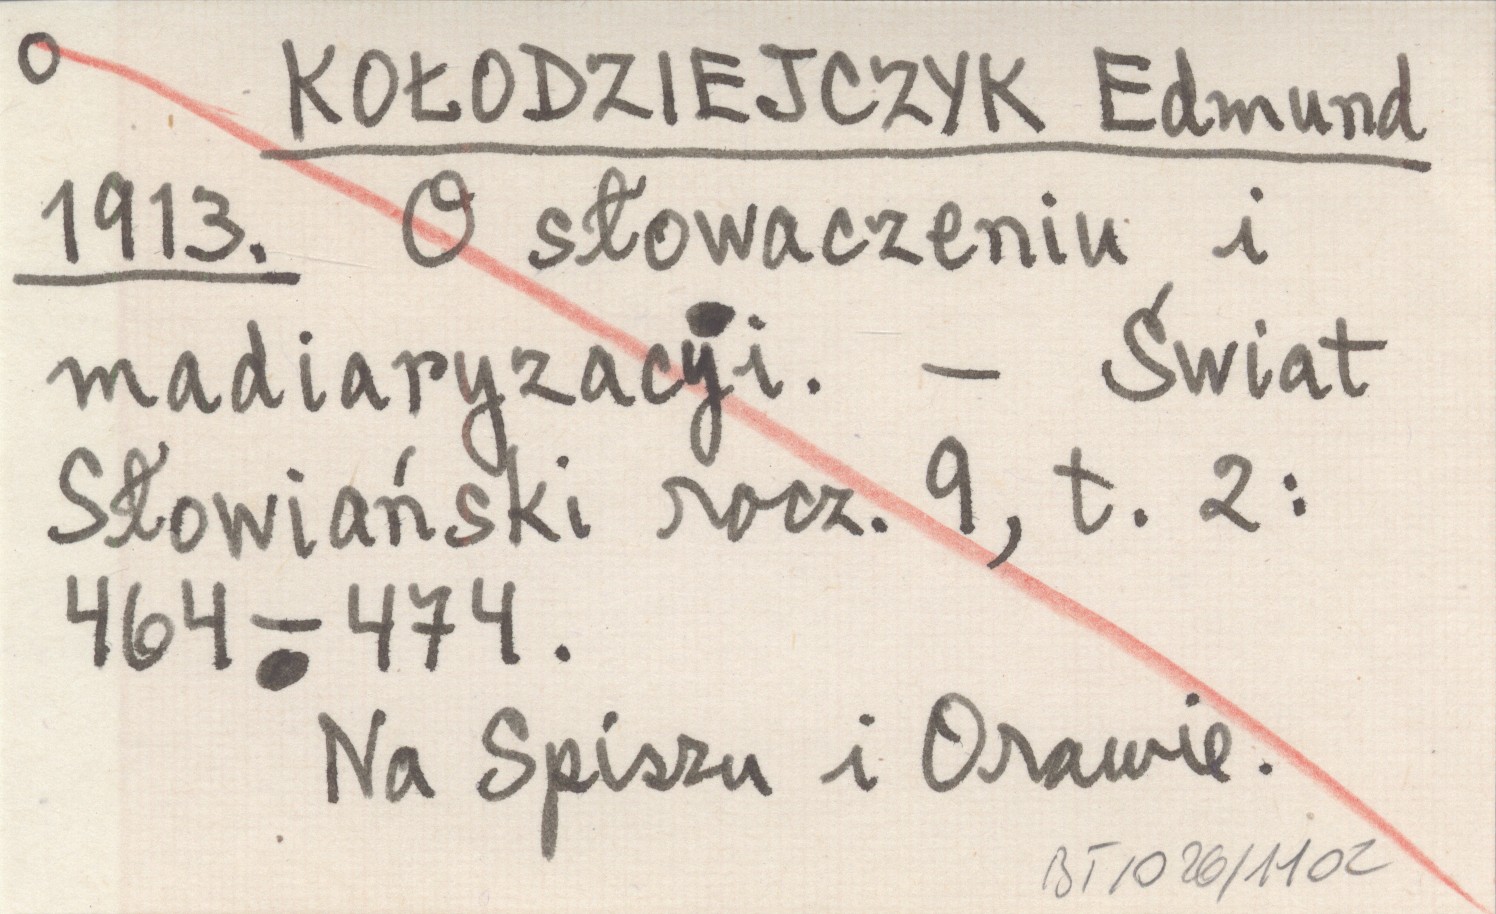 o KOŁODZIEJCZYK Edmund
1913. O słowaczeniu i
madiaryzacyi. – Świat
Słowiański rocz. 9, t. 2:
464–474.
Na Spiszu i Orawie.
BT/026/1102